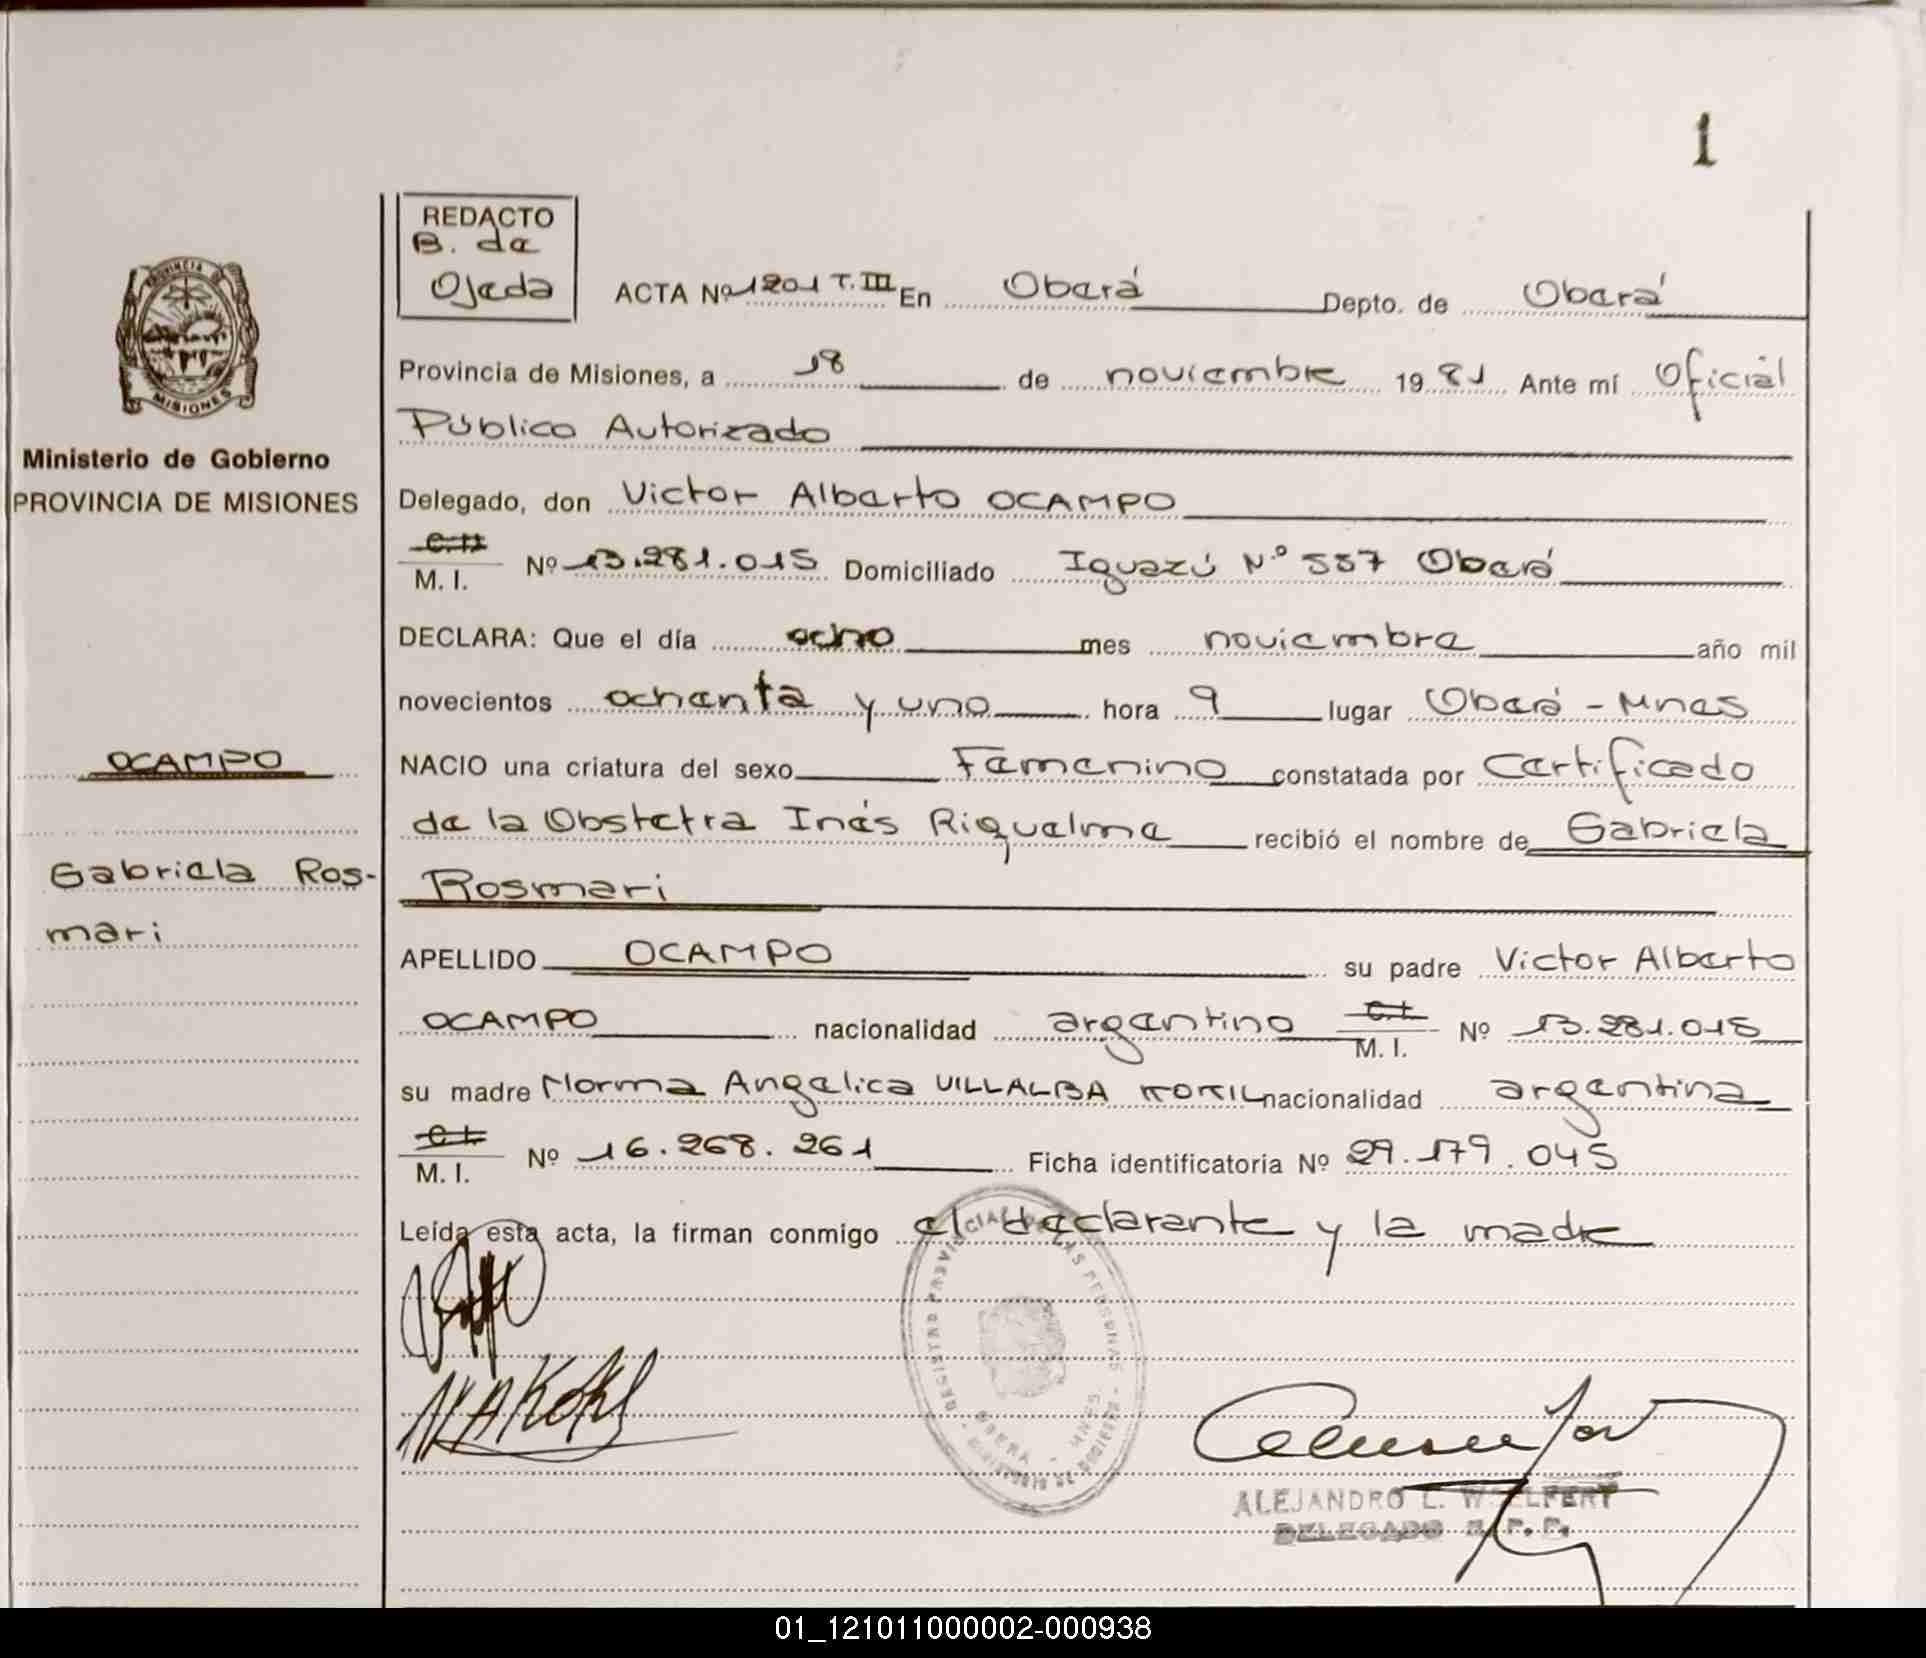 1
REDACTO
B. de
Ojeda
ACTA Nº 1201 T. III En Oberá Depto. de Oberá
PROVINCIA
MISIONES
Provincia de Misiones, a 18 de noviembre 1981 Ante mí Oficial
Público Autorizado
Ministerio de Gobierno
PROVINCIA DE MISIONES
Delegado, don Victor Alberto OCAMPO
C.I.
M. I. Nº 13.281.015 Domiciliado Iguazú Nº 557 Oberá
DECLARA: Que el día ocho mes noviembre año mil
novecientos ochenta y uno hora 9 lugar Oberá - Mnes
OCAMPO
NACIO una criatura del sexo Femenino constatada por Certificado
de la Obstetra Inés Riquelme recibió el nombre de Gabriela
Gabriela Ros-
mari
Rosmari
APELLIDO OCAMPO su padre Victor Alberto
OCAMPO nacionalidad argentino C.I. M. I. Nº 13.281.015
su madre Norma Angelica VILLALBA nacionalidad argentina
C.I.
M. I. Nº 16.268.261 Ficha identificatoria Nº 29.179.045
Leída esta acta, la firman conmigo el declarante y la madre
REGISTRO PROVINCIAL DE LAS PERSONAS
OBERA - MNES
ALEJANDRO L. WOELFERT
DELEGADO R. P. P.
01_121011000002-000938